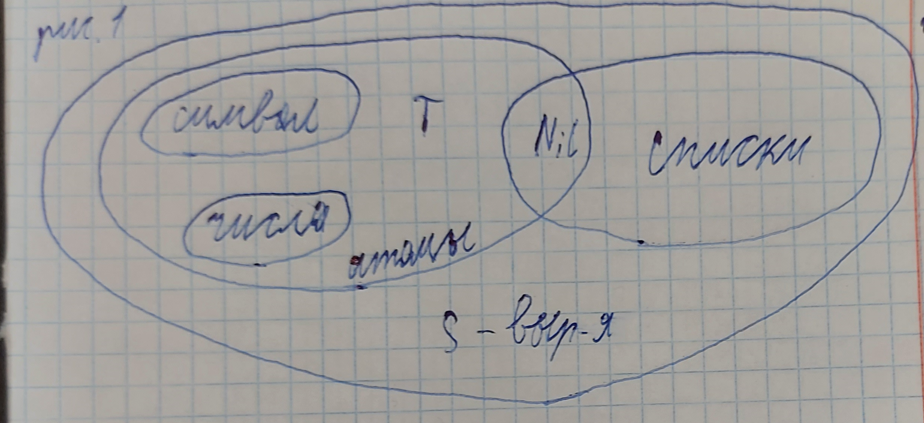 рис. 1
символ
T
Nil
списки
числа
атомы
S - выр-я